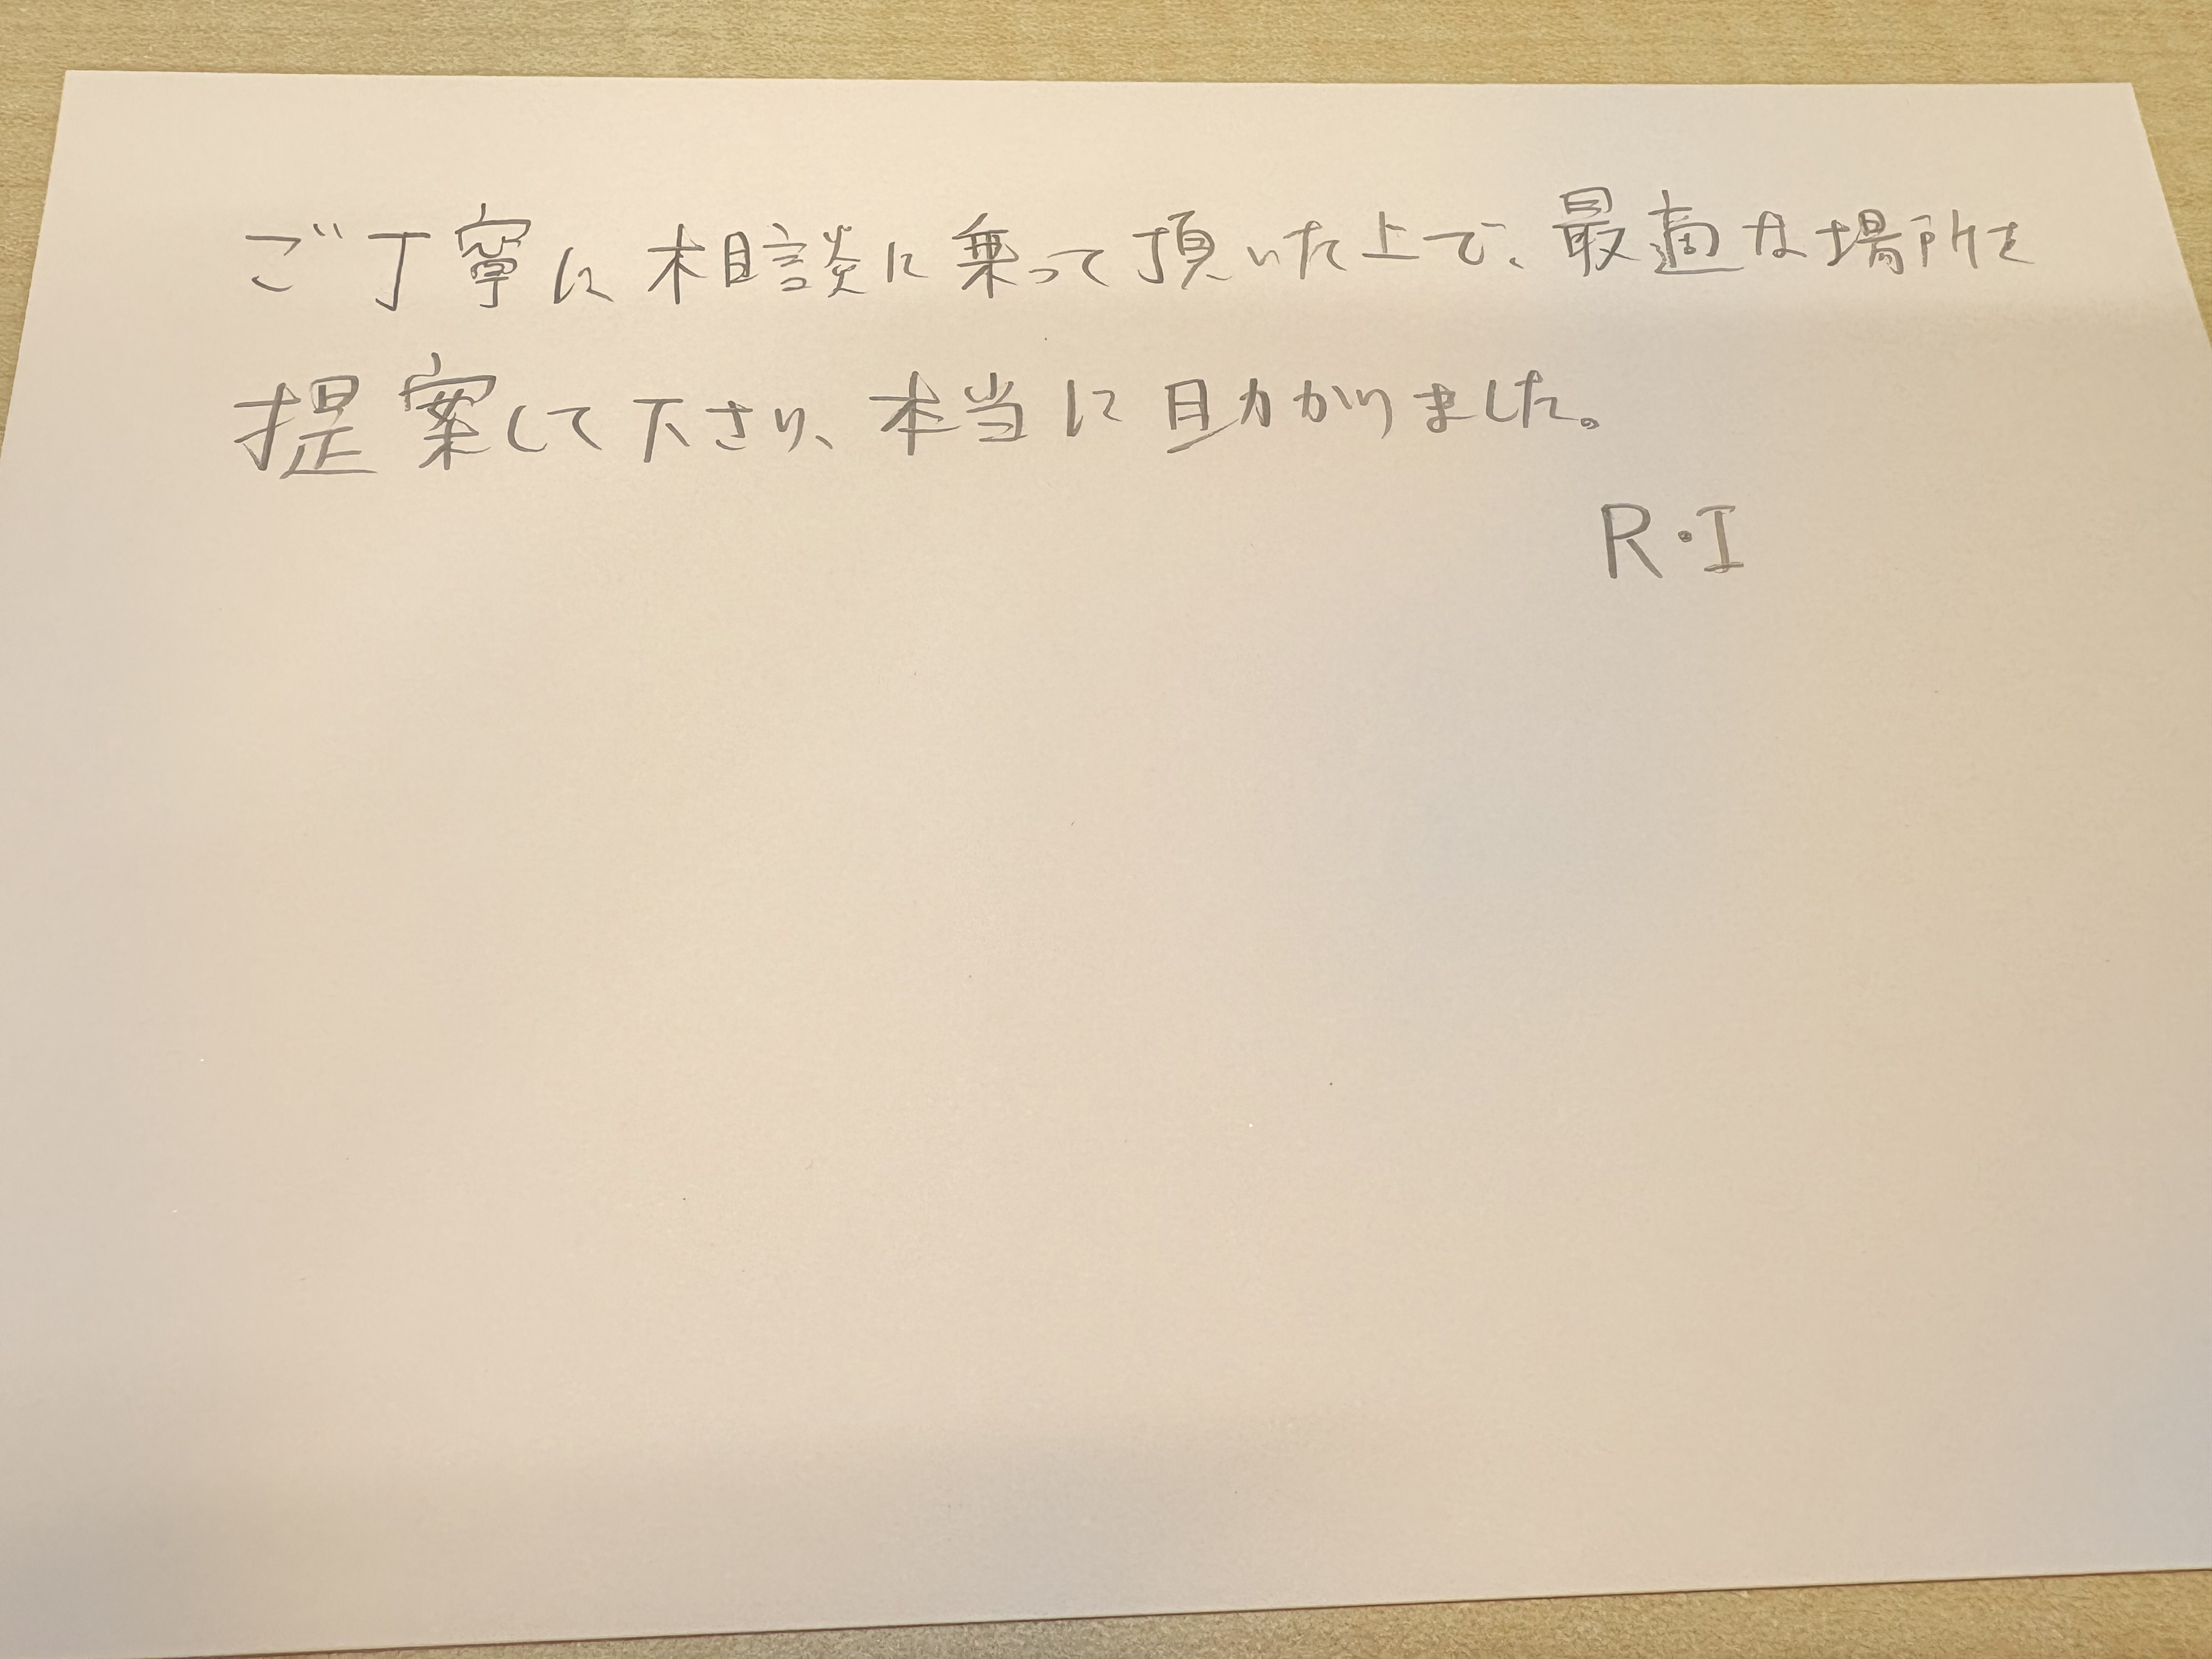 ご丁寧に相談に乗って頂いた上で、最適な場所を
提案して下さり、本当に助かりました。
R・I